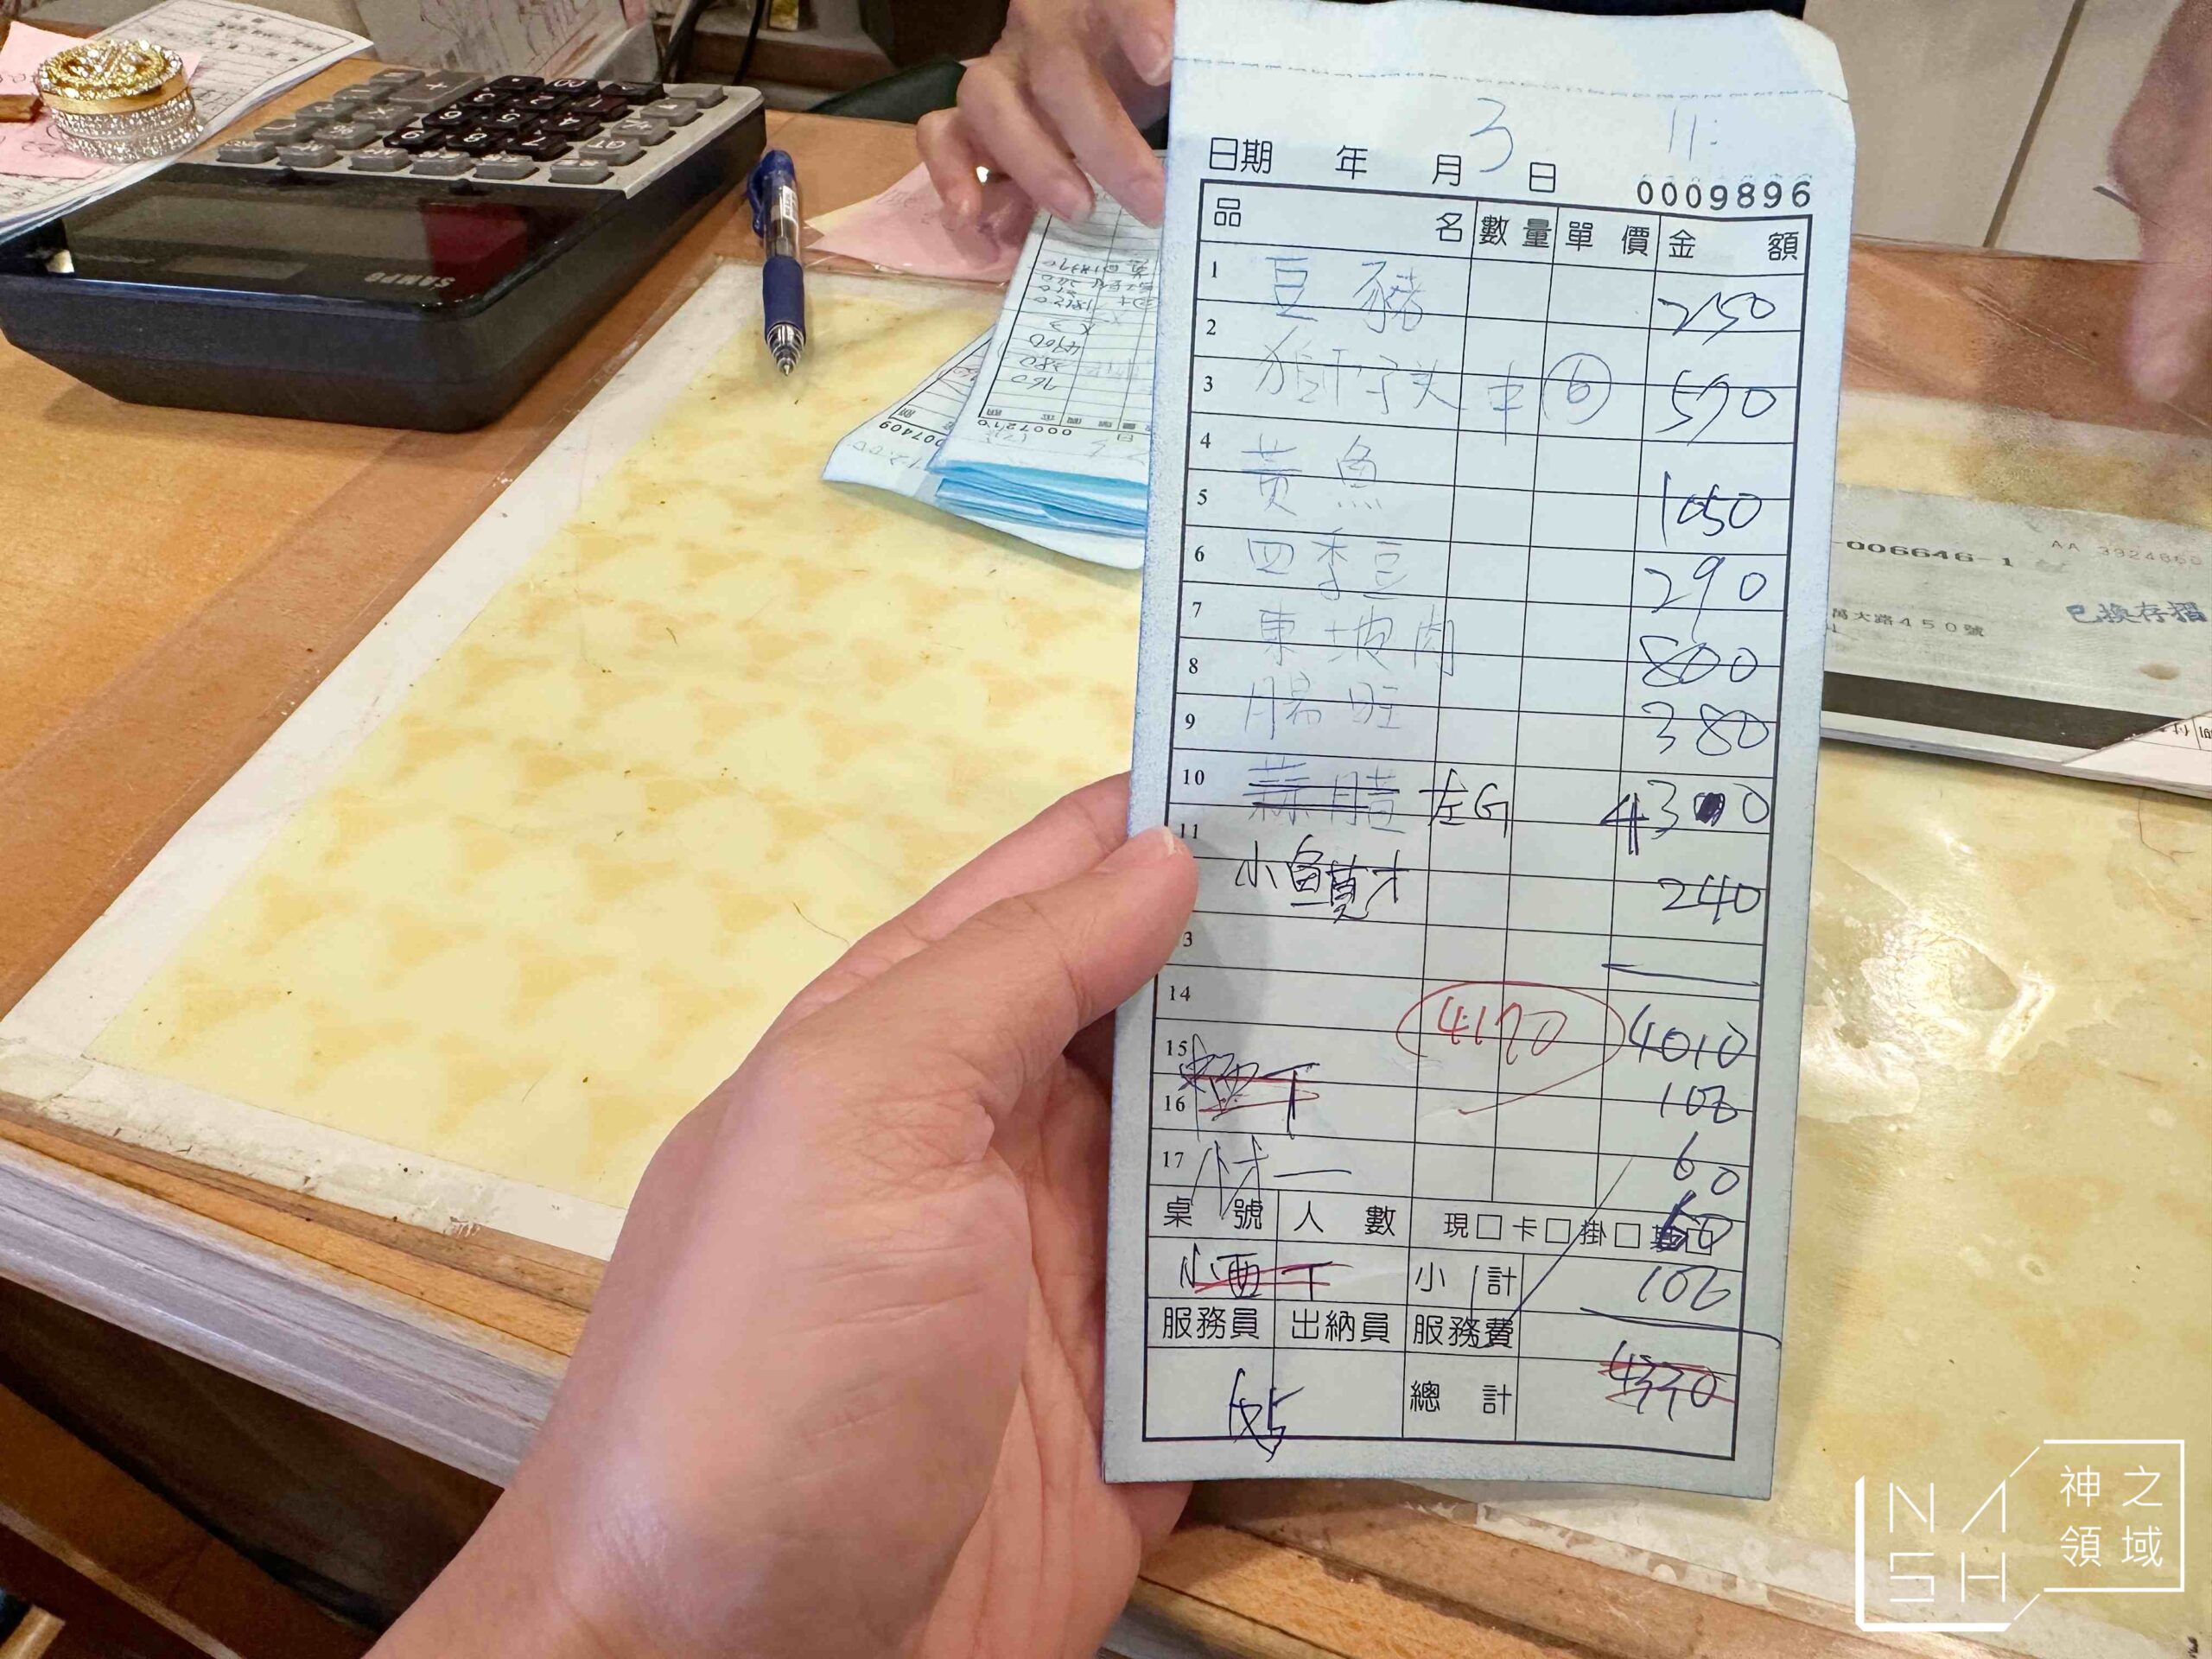 3 11:
日期 年 月 日 0009896
品 名 數量 單價 金額
1 豆 豬 250
2
3 獅子头 中 ⑥ 570
4 黃魚 1050
5
6 四季豆 290
7 東坡肉 800
8 腸旺 380
9
10 蒜 左G 430
11 小魚莧才 240
3
14 4170 4010
15 100
16 下
60
17 材一
桌號 人數 現□ 卡□ 掛□ □ 60
小西 下 小計 100
服務員 出納員 服務費
總計 4330
SAMPO
0007210
007409
760
380
-006646-1
AA 3924660
萬大路450號
已換存摺
NASH
神之
領域